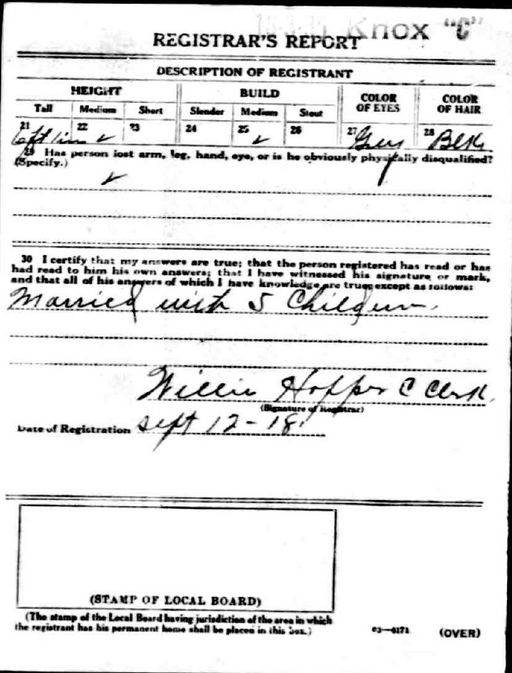 Knox "C"
REGISTRAR'S REPORT
DESCRIPTION OF REGISTRANT
HEIGHT BUILD COLOR OF EYES COLOR OF HAIR
Tall Medium Short Slender Medium Stout
21 22 ✓ 23 24 25 ✓ 26 27 Grey 28 Blk
29 Has person lost arm, leg, hand, eye, or is he obviously physically disqualified?
(Specify.)
✓
30 I certify that my answers are true; that the person registered has read or has
had read to him his own answers; that I have witnessed his signature or mark,
and that all of his answers of which I have knowledge are true, except as follows:
Married with 5 Children.
Willie Hopper C Clerk.
(Signature of Registrar)
Date of Registration Sept 12-18
(STAMP OF LOCAL BOARD)
(The stamp of the Local Board having jurisdiction of the area in which
the registrant has his permanent home shall be placed in this box.)
03—6171 (OVER)